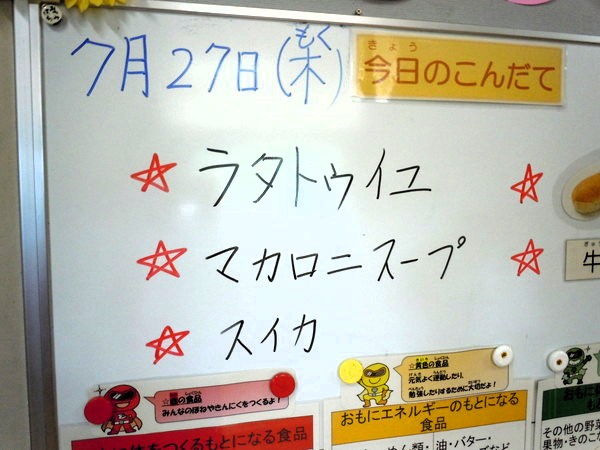 7月27日(木)
もく
きょう
今日のこんだて
☆ ラタトゥイユ ☆
☆ マカロニスープ ☆
☆ スイカ
ぎゅう
牛
☆赤の食品
みんなのほねやきんにくをつくるよ!
体をつくるもとになる食品
☆黄色の食品
元気よく運動したり、
勉強したりするために大切だよ!
おもにエネルギーのもとになる
食品
めん類・油・バター・
その他の野菜
果物・きのこな